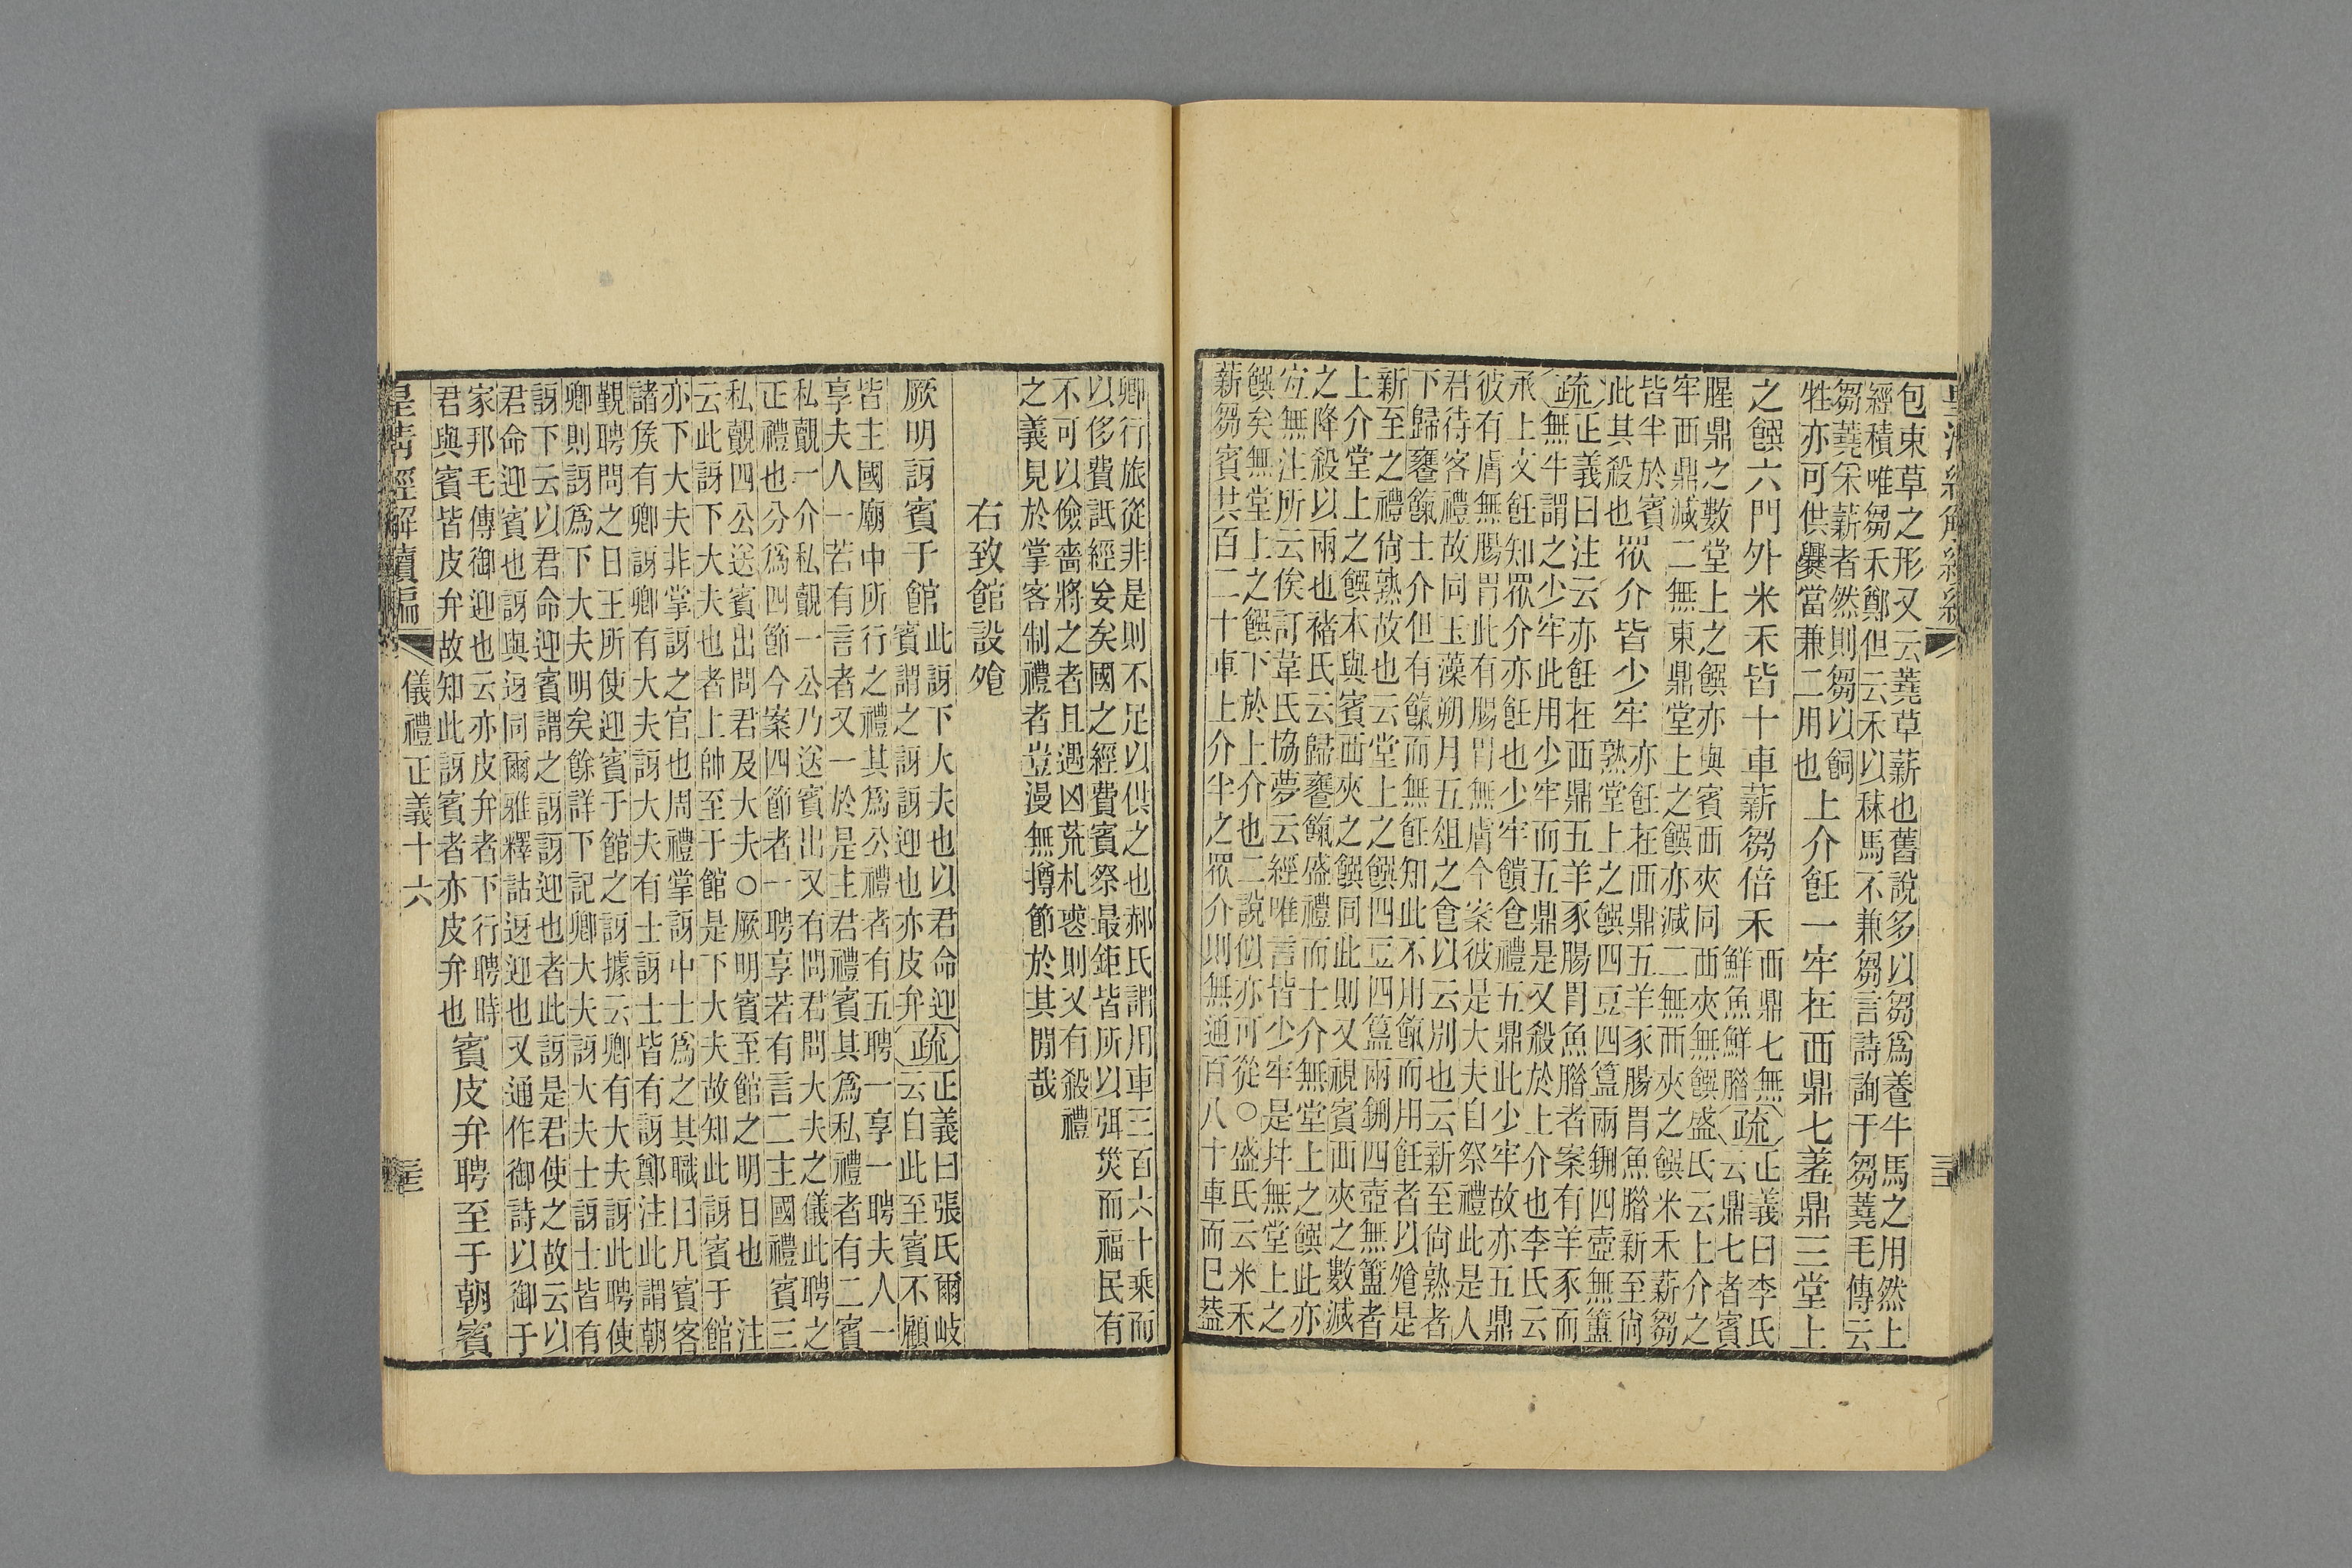 包束草之形又云蕘草薪也舊說多以芻爲養牛馬之用然上
經積唯芻禾鄭但云禾以秣馬不兼芻言詩詢于芻蕘毛傳云
芻蕘采薪者然則芻以飼
牲亦可供爨當兼二用也
上介飪一牢在西鼎七羞鼎三堂上
之饌六門外米禾皆十車薪芻倍禾
西鼎七無
鮮魚鮮腊
疏
正義曰李氏
云鼎七者賓
腥鼎之數堂上之饌亦與賓西夾同西夾無饌盛氏云上介之
牢西鼎減二無東鼎堂上之饌亦減二無西夾之饌米禾薪芻
皆半於賓
此其殺也
眾介皆少牢
亦飪在西鼎五羊豕腸胃魚腊新至尙
熟堂上之饌四豆四簋兩鉶四壺無簠
疏
正義曰注云亦飪在西鼎五羊豕腸胃魚腊者案有羊豕而
無牛謂之少牢此用少牢而五鼎是又殺於上介也李氏云
承上文飪知眾介亦飪也少牢饋食禮五鼎此少牢故亦五鼎
彼有膚無腸胃此有腸胃無膚今案彼是大夫自祭禮此是人
君待客禮故同玉藻朔月五俎之食以云別也云新至尙熟者
下歸饔餼士介但有餼而無飪知此不用餼而用飪者以飧是
新至之禮尙熟故也云堂上之饌四豆四簋兩鉶四壺無簠者
上介堂上之饌本與賓西夾之饌同此則又視賓西夾之數減
之降殺以兩也褚氏云歸饔餼盛禮而士介無堂上之饌此亦
宐無注所云俟訂韋氏協夢云經唯言皆少牢是幷無堂上之
饌矣無堂上之饌下於上介也二說似亦可從○盛氏云米禾
薪芻賓共百二十車上介半之眾介則無通百八十車而已葢
卿行旅從非是則不足以供之也郝氏謂用車三百六十乘而
以侈費詆經妄矣國之經費賓祭最鉅皆所以弭災而福民有
不可以儉嗇將之者且遇凶荒札喪則又有殺禮
之義見於掌客制禮者豈漫無撙節於其閒哉
右致館設飧
厥明訝賓于館
此訝下大夫也以君命迎
賓謂之訝訝迎也亦皮弁
疏
正義曰張氏爾岐
云自此至賓不顧
皆主國廟中所行之禮其爲公禮者有五聘一享一聘夫人一
享夫人一若有言者又一於是主君禮賓其爲私禮者有二賓
私覿一介私覿一公乃送賓出又有問君問大夫之儀此聘之
正禮也分爲四節今案四節者一聘享若有言二主國禮賓三
私覿四公送賓出問君及大夫○厥明賓至館之明日也 注
云此訝下大夫也者上帥至于館是下大夫故知此訝賓于館
亦下大夫非掌訝之官也周禮掌訝中士爲之其職曰凡賓客
諸矦有卿訝卿有大夫訝大夫有士訝士皆有訝鄭注此謂朝
覲聘問之日王所使迎賓于館之訝據云卿有大夫訝此聘使
卿則訝爲下大夫明矣餘詳下記卿大夫訝大夫士訝士皆有
訝下云以君命迎賓謂之訝訝迎也者此訝是君使之故云以
君命迎賓也訝與迓同爾雅釋詁迓迎也又通作御詩以御于
家邦毛傳御迎也云亦皮弁者下行聘時
君與賓皆皮弁故知此訝賓者亦皮弁也
賓皮弁聘至于朝賓
皇清經解續編
儀禮正義十六